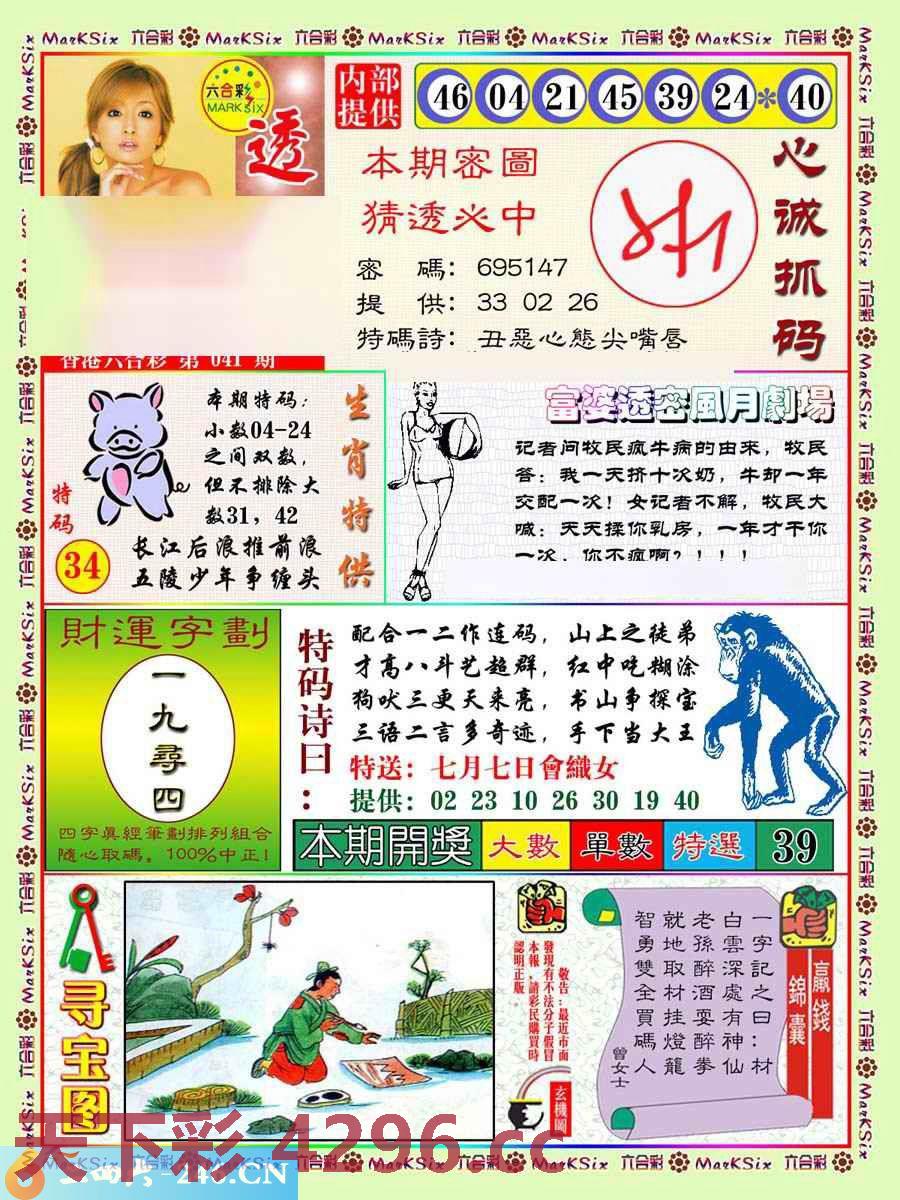 MarKSix 六合彩 MarKSix 六合彩 MarKSix 六合彩 MarKSix 六合彩 MarKSix 六合彩
六合彩
MARK SIX
透
内部
提供
46 04 21 45 39 24 * 40
本期密圖
猜透必中
密 碼: 695147
提 供: 33 02 26
特碼詩: 丑惡心態尖嘴唇
心诚抓码
香港六合彩 第 041 期
本期特码:
小数04-24
之间双数,
但不排除大
数31, 42
长江后浪推前浪
五陵少年争缠头
生肖特供
特码
34
富婆透密風月劇場
记者问牧民疯牛病的由来, 牧民
答: 我一天挤十次奶, 牛却一年
交配一次! 女记者不解, 牧民大
喊: 天天揉你乳房, 一年才干你
一次, 你不疯啊? ! ! !
財運字劃
一九尋四
四字真經筆劃排列組合
隨心取碼。100%中正!
特码诗曰:
配合一二作连码, 山上之徒弟
才高八斗艺超群, 红中吃糊涂
狗吠三更天来亮, 书山争探宝
三语二言多奇迹, 手下当大王
特送: 七月七日會織女
提供: 02 23 10 26 30 19 40
本期開獎 大數 單數 特選 39
寻宝图
敬告:最近市面
發現有不法分子假冒
本報,請彩民購買時
認明正版。
玄機圖
一字記之曰:材
白雲深處有神仙
老孫醉酒耍醉拳
就地取材挂燈籠
智勇雙全買碼人
曾女士
贏錢
錦囊
天下彩 4296.cc
MarKSix 六合彩 MarKSix 六合彩 MarKSix 六合彩